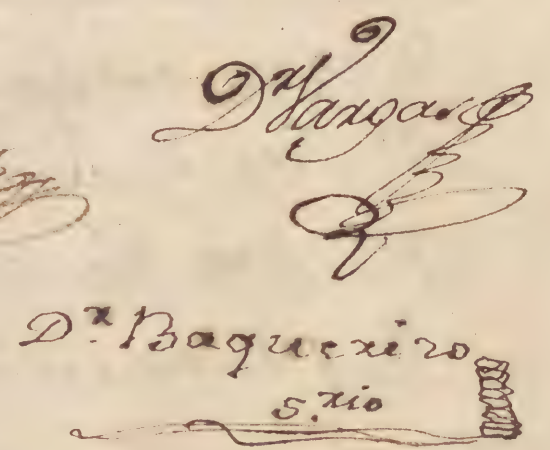 Dr Vargas
Dr. Baqueriro
S.rio